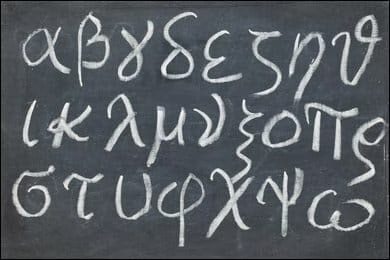 α β γ δ ε ζ η θ
ι κ λ μ ν ξ ο π ς
σ τ υ φ χ ψ ω